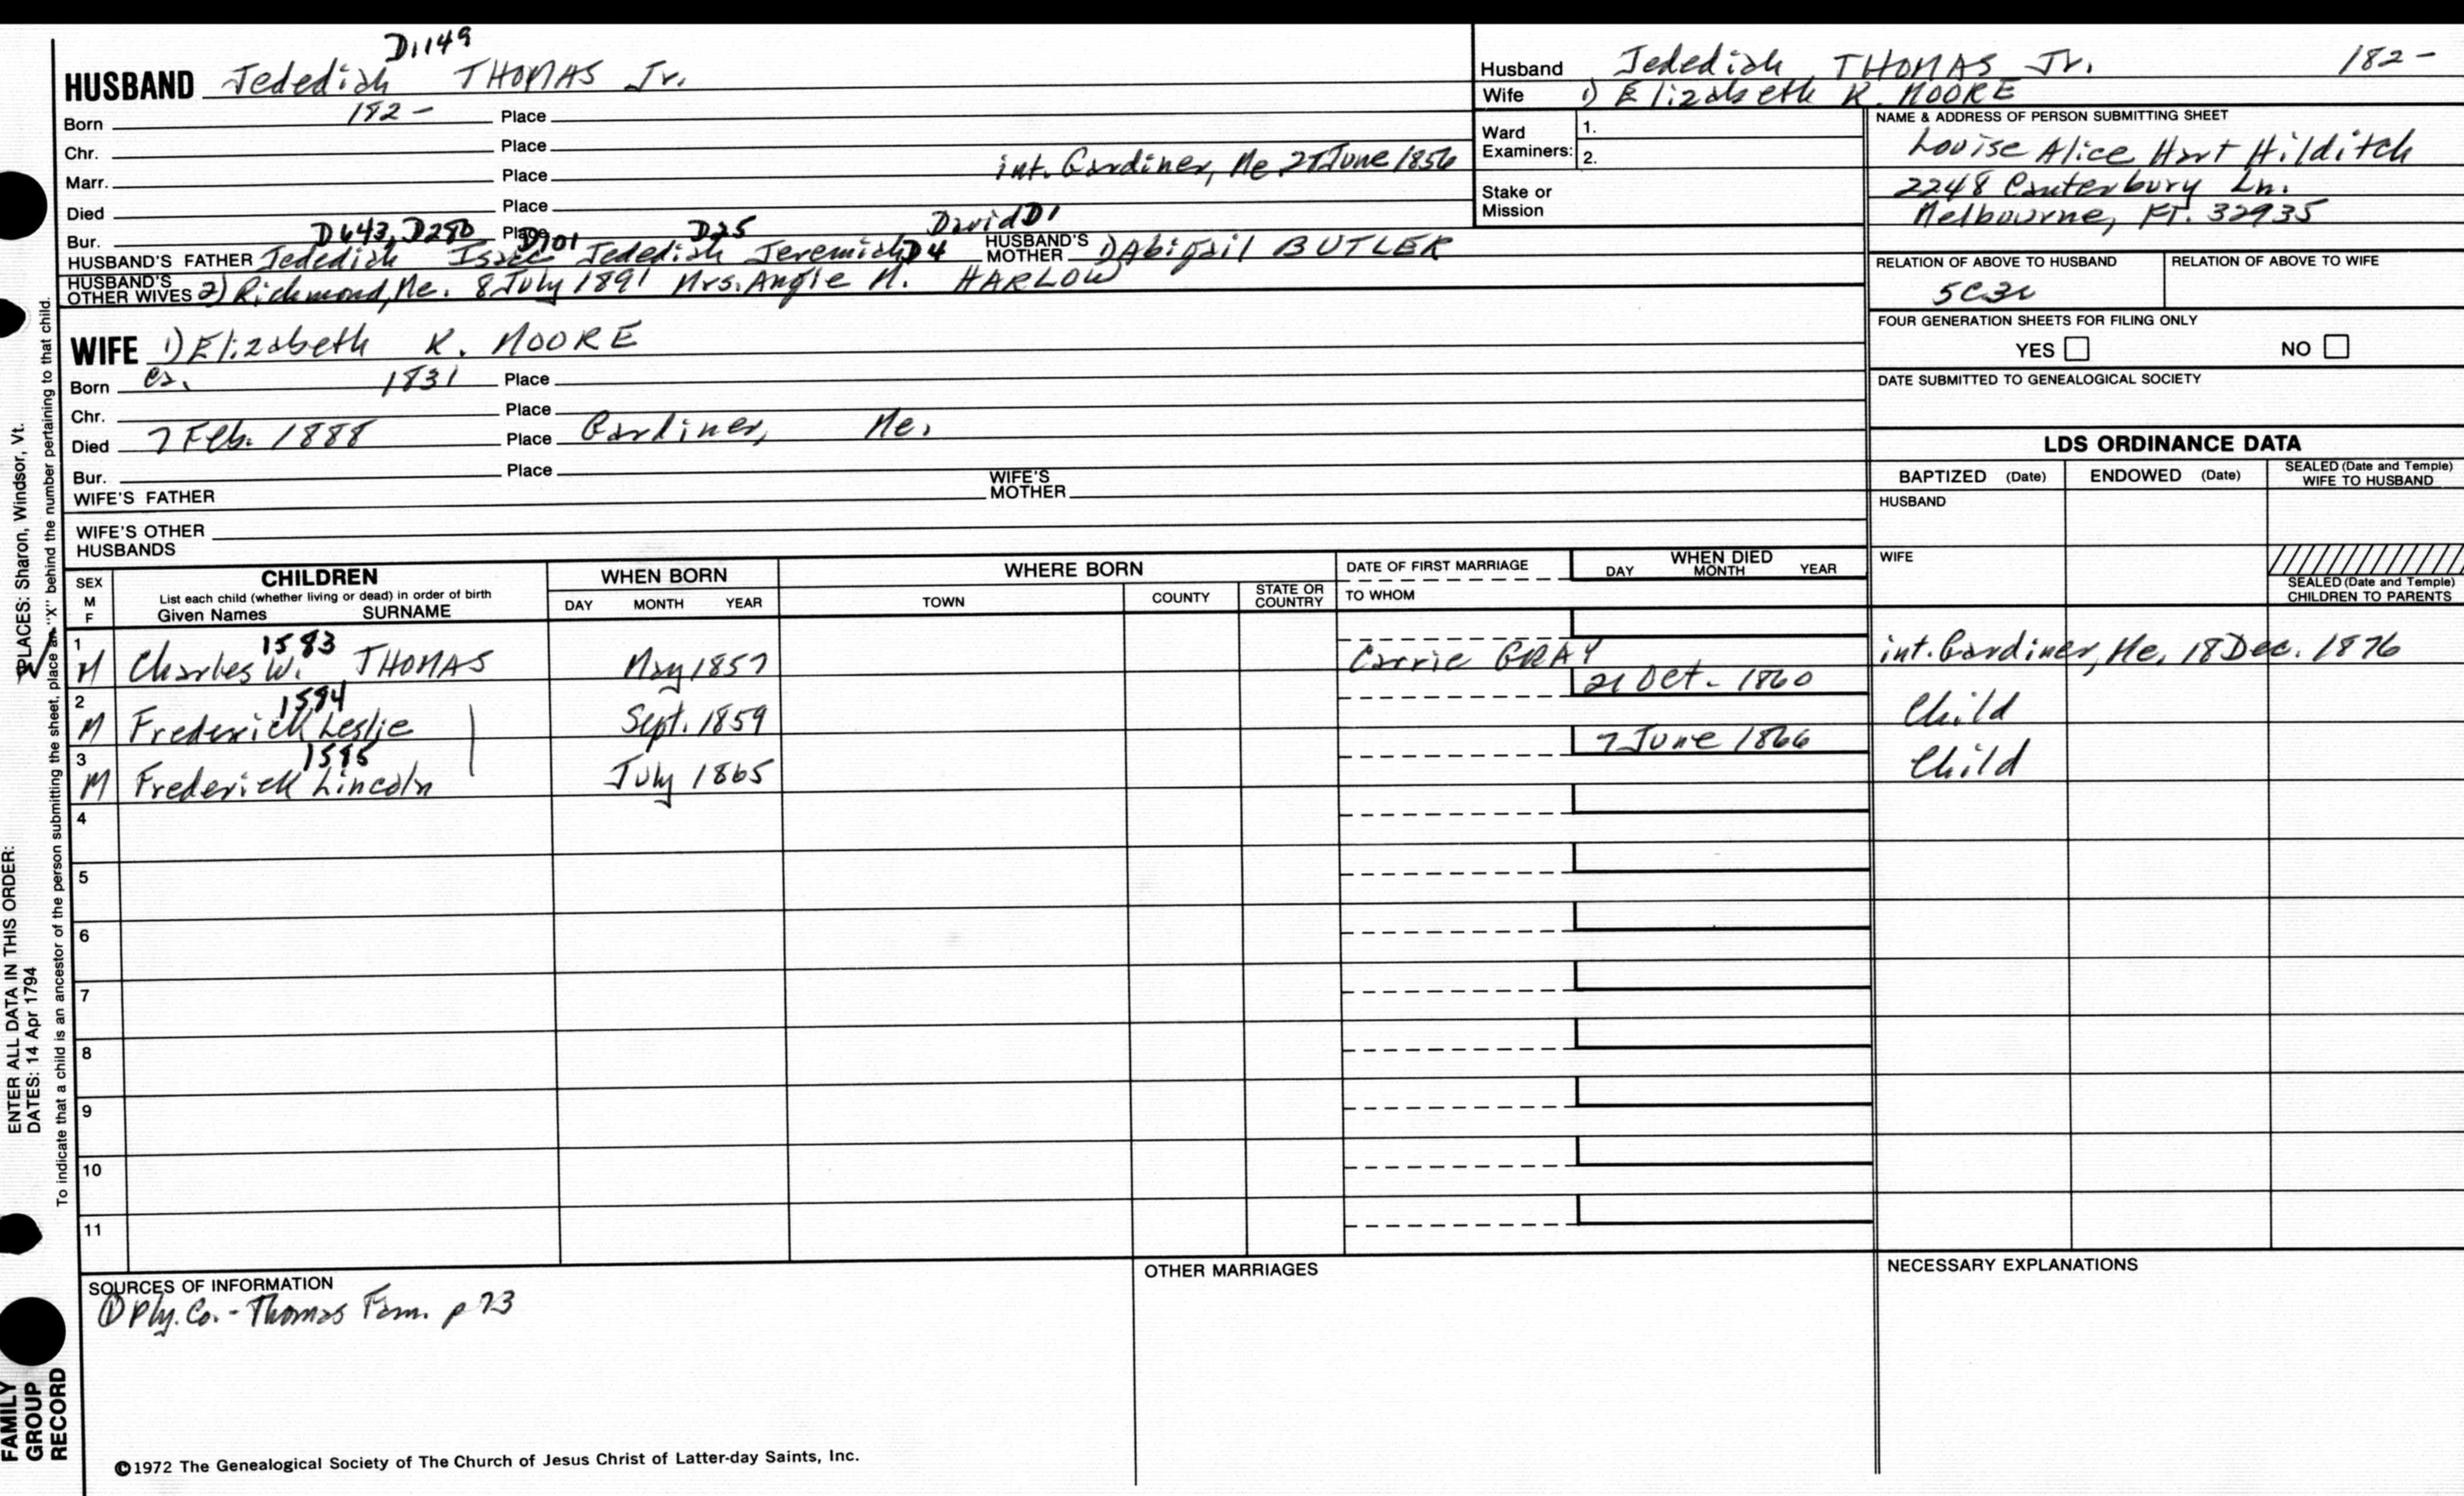 D1149
HUSBAND Jedediah THOMAS Jr.
Born 182- Place
Chr. Place
Marr. Place int. Gardiner, Me June 1856
Died Place
Bur. Place
D643, D280 D101 D25 David D1
HUSBAND'S FATHER Jedediah Isaac Jedediah Jeremiah D4 HUSBAND'S MOTHER 1) Abigail BUTLER
HUSBAND'S OTHER WIVES 2) Richmond, Me. 8 July 1891 Mrs. Angie M. HARLOW
WIFE 1) Elizabeth K. MOORE
Born ca. 1831 Place
Chr. Place
Died 7 Feb. 1888 Place Gardiner, Me.
Bur. Place
WIFE'S FATHER WIFE'S MOTHER
WIFE'S OTHER HUSBANDS
Husband Jedediah THOMAS Jr. 182-
Wife 1) Elizabeth K. MOORE
Ward Examiners: 1.
2.
Stake or Mission
NAME & ADDRESS OF PERSON SUBMITTING SHEET
Louise Alice Hart Hilditch
2248 Canterbury Ln.
Melbourne, Fl. 32935
RELATION OF ABOVE TO HUSBAND RELATION OF ABOVE TO WIFE
5C3r
FOUR GENERATION SHEETS FOR FILING ONLY
YES NO
DATE SUBMITTED TO GENEALOGICAL SOCIETY
LDS ORDINANCE DATA
BAPTIZED (Date) ENDOWED (Date) SEALED (Date and Temple) WIFE TO HUSBAND
HUSBAND
WIFE
SEALED (Date and Temple) CHILDREN TO PARENTS
SEX M F CHILDREN WHEN BORN WHERE BORN DATE OF FIRST MARRIAGE WHEN DIED
List each child (whether living or dead) in order of birth
Given Names SURNAME DAY MONTH YEAR TOWN COUNTY STATE OR COUNTRY TO WHOM DAY MONTH YEAR
1583
1 M Charles W. THOMAS May 1857 Carrie GRAY int. Gardiner, Me. 18 Dec. 1876
1584
2 M Frederick Leslie Sept. 1859 21 Oct. 1860 Child
1585
3 M Frederick Lincoln July 1865 7 June 1866 Child
4
5
6
7
8
9
10
11
SOURCES OF INFORMATION
① Ply. Co. - Thomas Fam. p 73
OTHER MARRIAGES
NECESSARY EXPLANATIONS
©1972 The Genealogical Society of The Church of Jesus Christ of Latter-day Saints, Inc.
ENTER ALL DATA IN THIS ORDER:
DATES: 14 Apr 1794 PLACES: Sharon, Windsor, Vt.
To indicate that a child is an ancestor of the person submitting the sheet, place an "X" behind the number pertaining to that child.
FAMILY
GROUP
RECORD